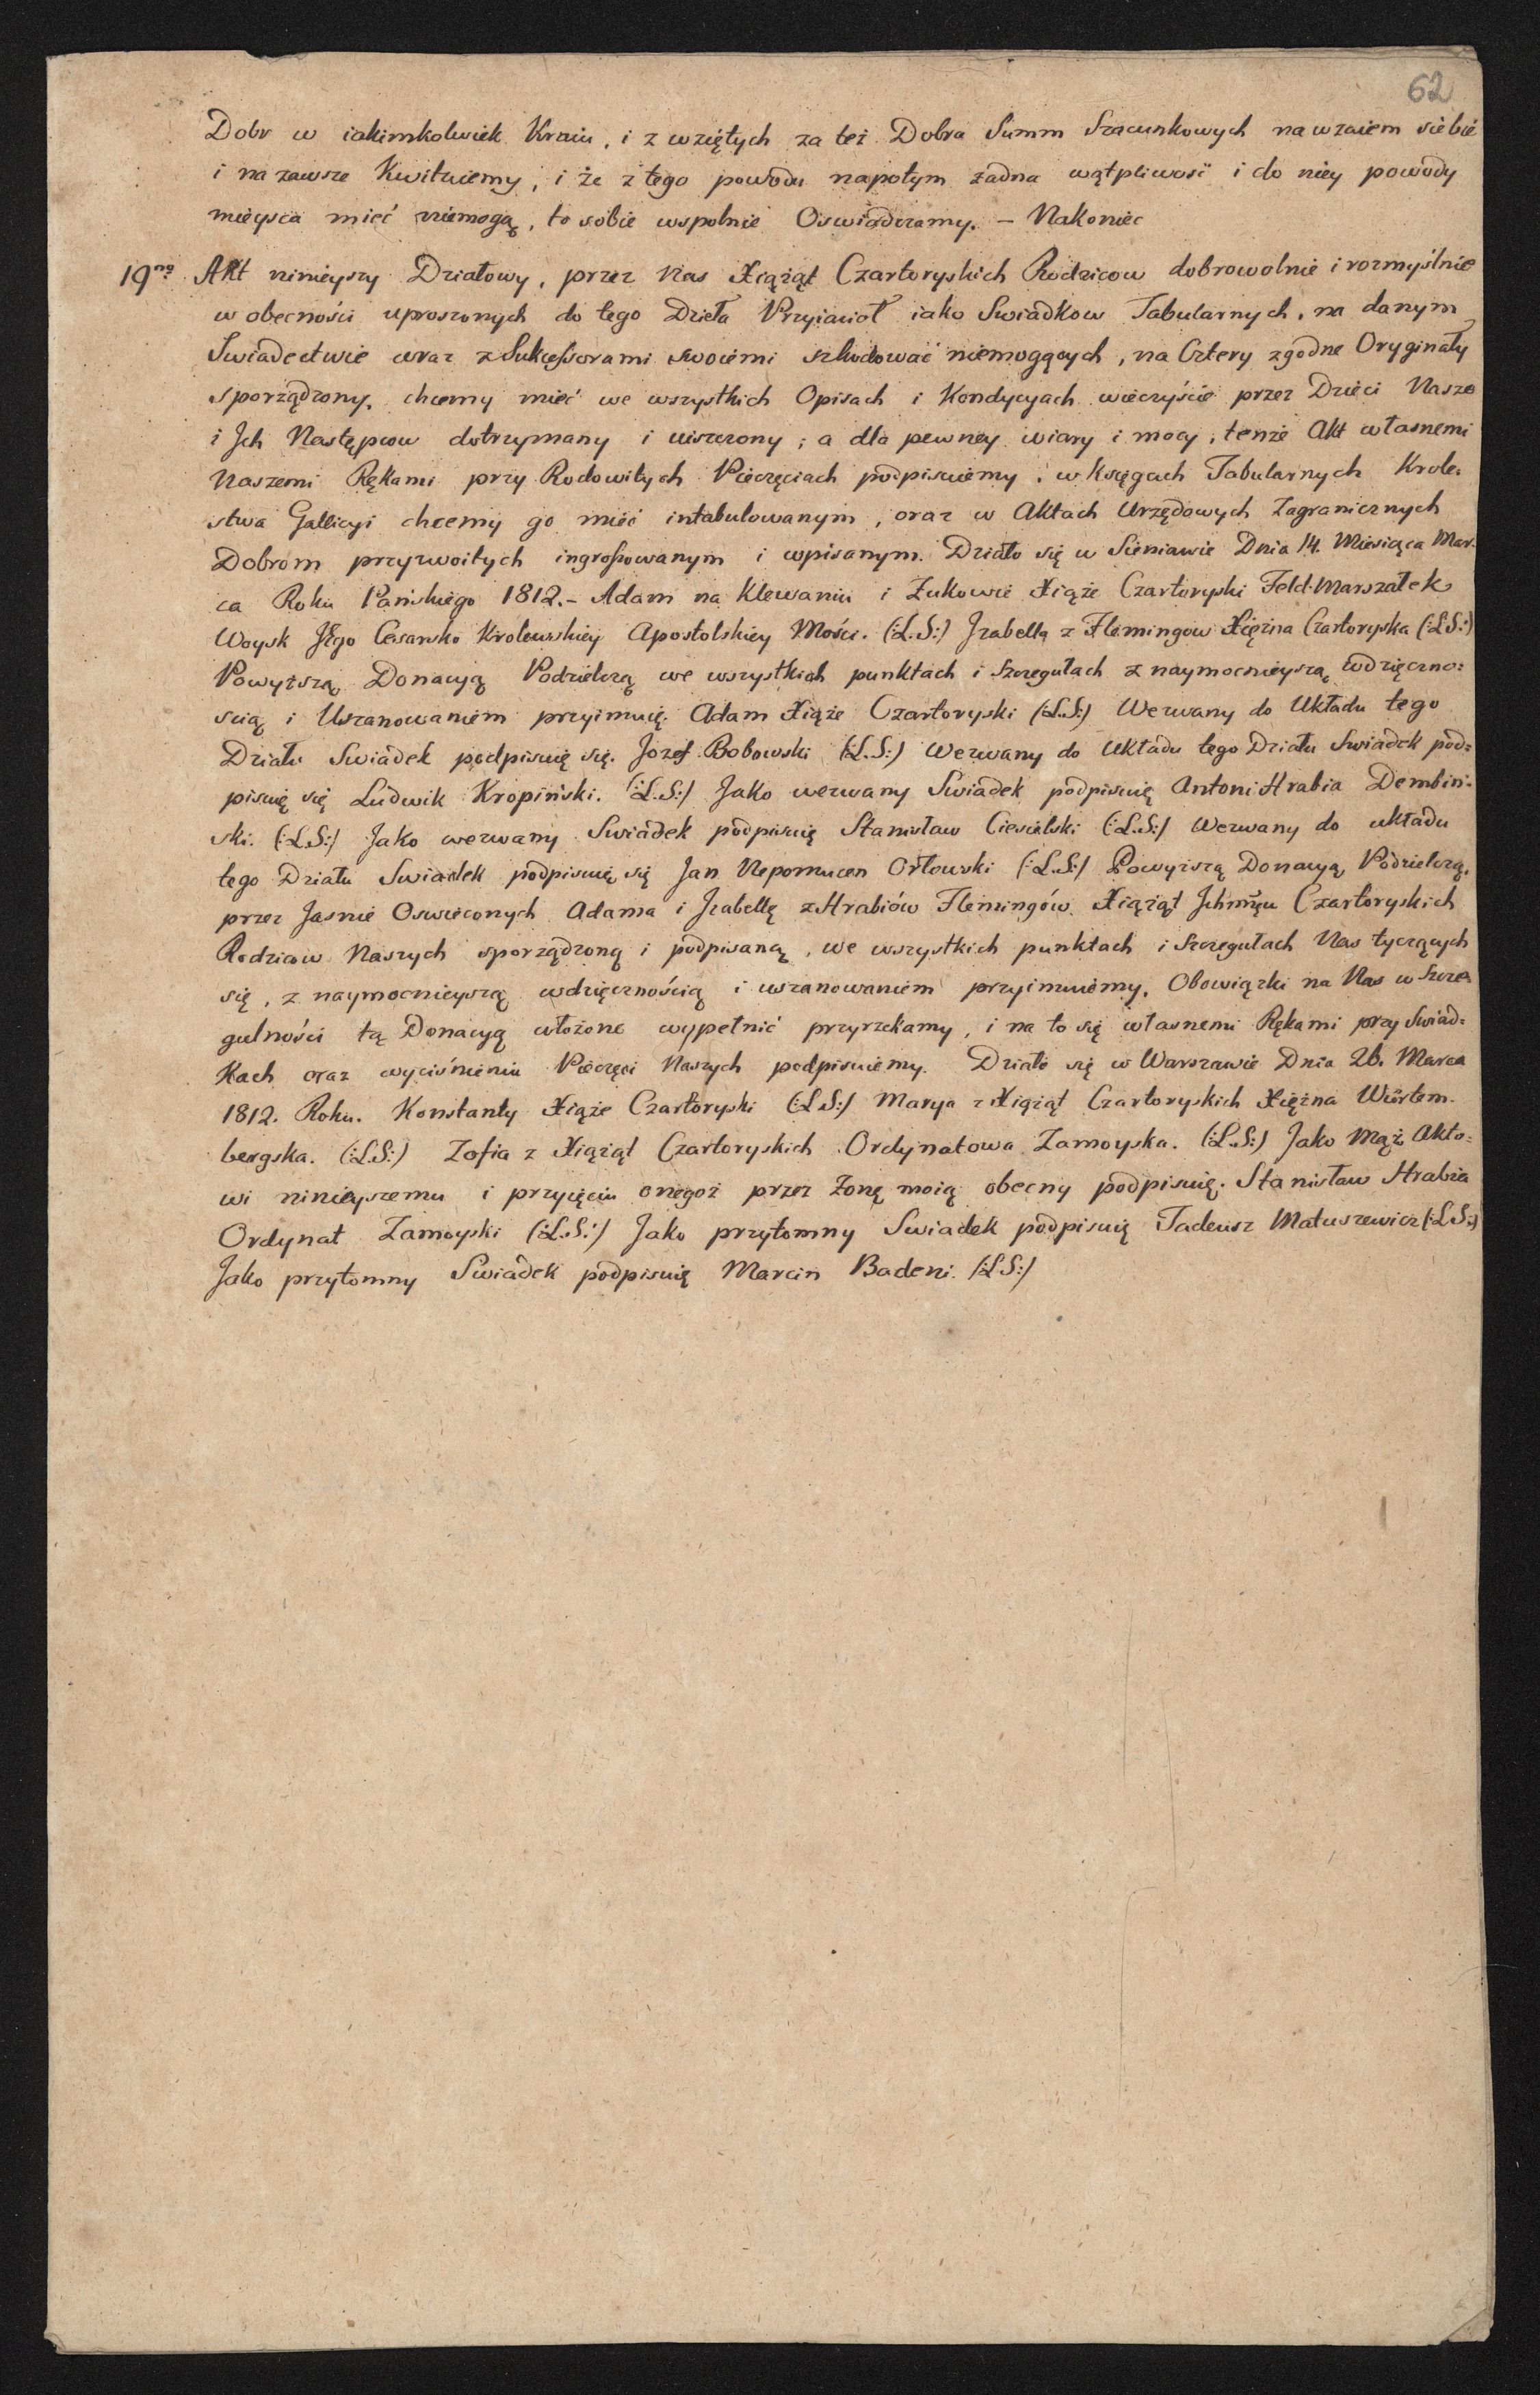 62
Dobr w iakimkolwiek Kraiu, i z wziętych za też Dobra Summ Szacunkowych nawzaiem siebie
i na zawsze Kwituiemy, i że z tego powodu napotym żadna wątpliwość i do niey powody
mieysca mieć niemogą, to sobie wspolnie Oswiadczamy. – Nakoniec
19no Akt ninieyszy Działowy, przez Nas Xiążąt Czartoryskich Rodzicow dobrowolnie i rozmyślnie
w obecności uproszonych do tego Dzieła Przyiacioł iako Swiadkow Tabularnych, na danym
Swiadectwie wraz z Sukcessorami swoiemi szkodować niemogących, na Cztery zgodne Oryginały
sporządzony, chcemy mieć we wszystkich Opisach i Kondycyach wieczyście przez Dzieci Nasze
i Jch Następcow dotrzymany i uiszczony; a dla pewney wiary i mocy, tenże Akt własnemi
Naszemi Rękami przy Rodowitych Pieczęciach podpisuiemy, w Księgach Tabularnych Krole-
stwa Gallicyi chcemy go mieć intabulowanym, oraz w Aktach Urzędowych Zagranicznych
Dobrom przyzwoitych ingrossowanym i wpisanym. Działo się w Sieniawie Dnia 14. Miesiąca Mar-
ca Roku Pańskiego 1812. – Adam na Klewaniu i Żukowie Xiąże Czartoryski Feld-Marszałek
Woysk Jego Cesarsko Krolewskiey Apostolskiey Mości. (:L.S:) Jzabella z Flemingow Xiężna Czartoryska (:L.S:)
Powyższą Donacyą Podzielczą we wszystkich punktach i Szczegułach z naymocnieyszą wdzięczno=
scią i Uszanowaniem przyimuię. Adam Xiąże Czartoryski (:L.S:) Wezwany do Układu tego
Działu Swiadek podpisuię się. Jozef Bobowski (:L.S:) Wezwany do Układu tego Działu Swiadek pod=
pisuię się Ludwik Kropiński. (:L.S:) Jako wezwany Swiadek podpisuię Antoni Hrabia Dembiń=
ski. (:L.S:) Jako wezwany Swiadek podpisuię Stanisław Ciesielski (:L.S:) Wezwany do układu
tego Działu Swiadek podpisuię się Jan Nepomucen Orłowski (:L.S:) Powyższą Donacyą Podzielczą,
przez Jasnie Oswieconych Adama i Jzabellę z Hrabiów Flemingów Xiążąt Czartoryskich
Rodzicow Naszych sporządzoną i podpisaną, we wszystkich punktach i Szczegułach Nas tyczących
się, z naymocnieyszą wdzięcznością i uszanowaniem przyimuiemy, Obowiązki na Nas w Szcze=
gulności tą Donacyą włożone wypełnić przyrzekamy, i na to się własnemi Rękami przy Swiad=
kach oraz wyciśnieniu Pieczęci Naszych podpisuiemy. Działo się w Warszawie Dnia 26. Marca
1812. Roku. Konstanty Xiąże Czartoryski (:L.S:) Marya z Xiążąt Czartoryskich Xiężna Würtem-
bergska. (:L.S:) Zofia z Xiążąt Czartoryskich Ordynatowa Zamoyska. (:L.S:) Jako Mąż Akto=
wi ninieyszemu i przyięciu onegoż przez Żonę moią obecny podpisuię. Stanisław Hrabia
Ordynat Zamoyski (:L.S:) Jako przytomny Swiadek podpisuię Tadeusz Matuszewicz (:L.S:)
Jako przytomny Swiadek podpisuię Marcin Badeni. (:L.S:)